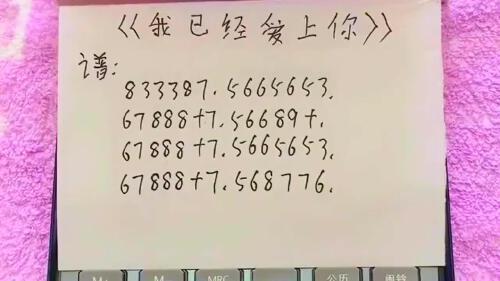 《我已经爱上你》
谱:
833387.5665653.
67888+7.56689+.
67888+7.5665653.
67888+7.568776.
M+ M MRC 公历 闹铃